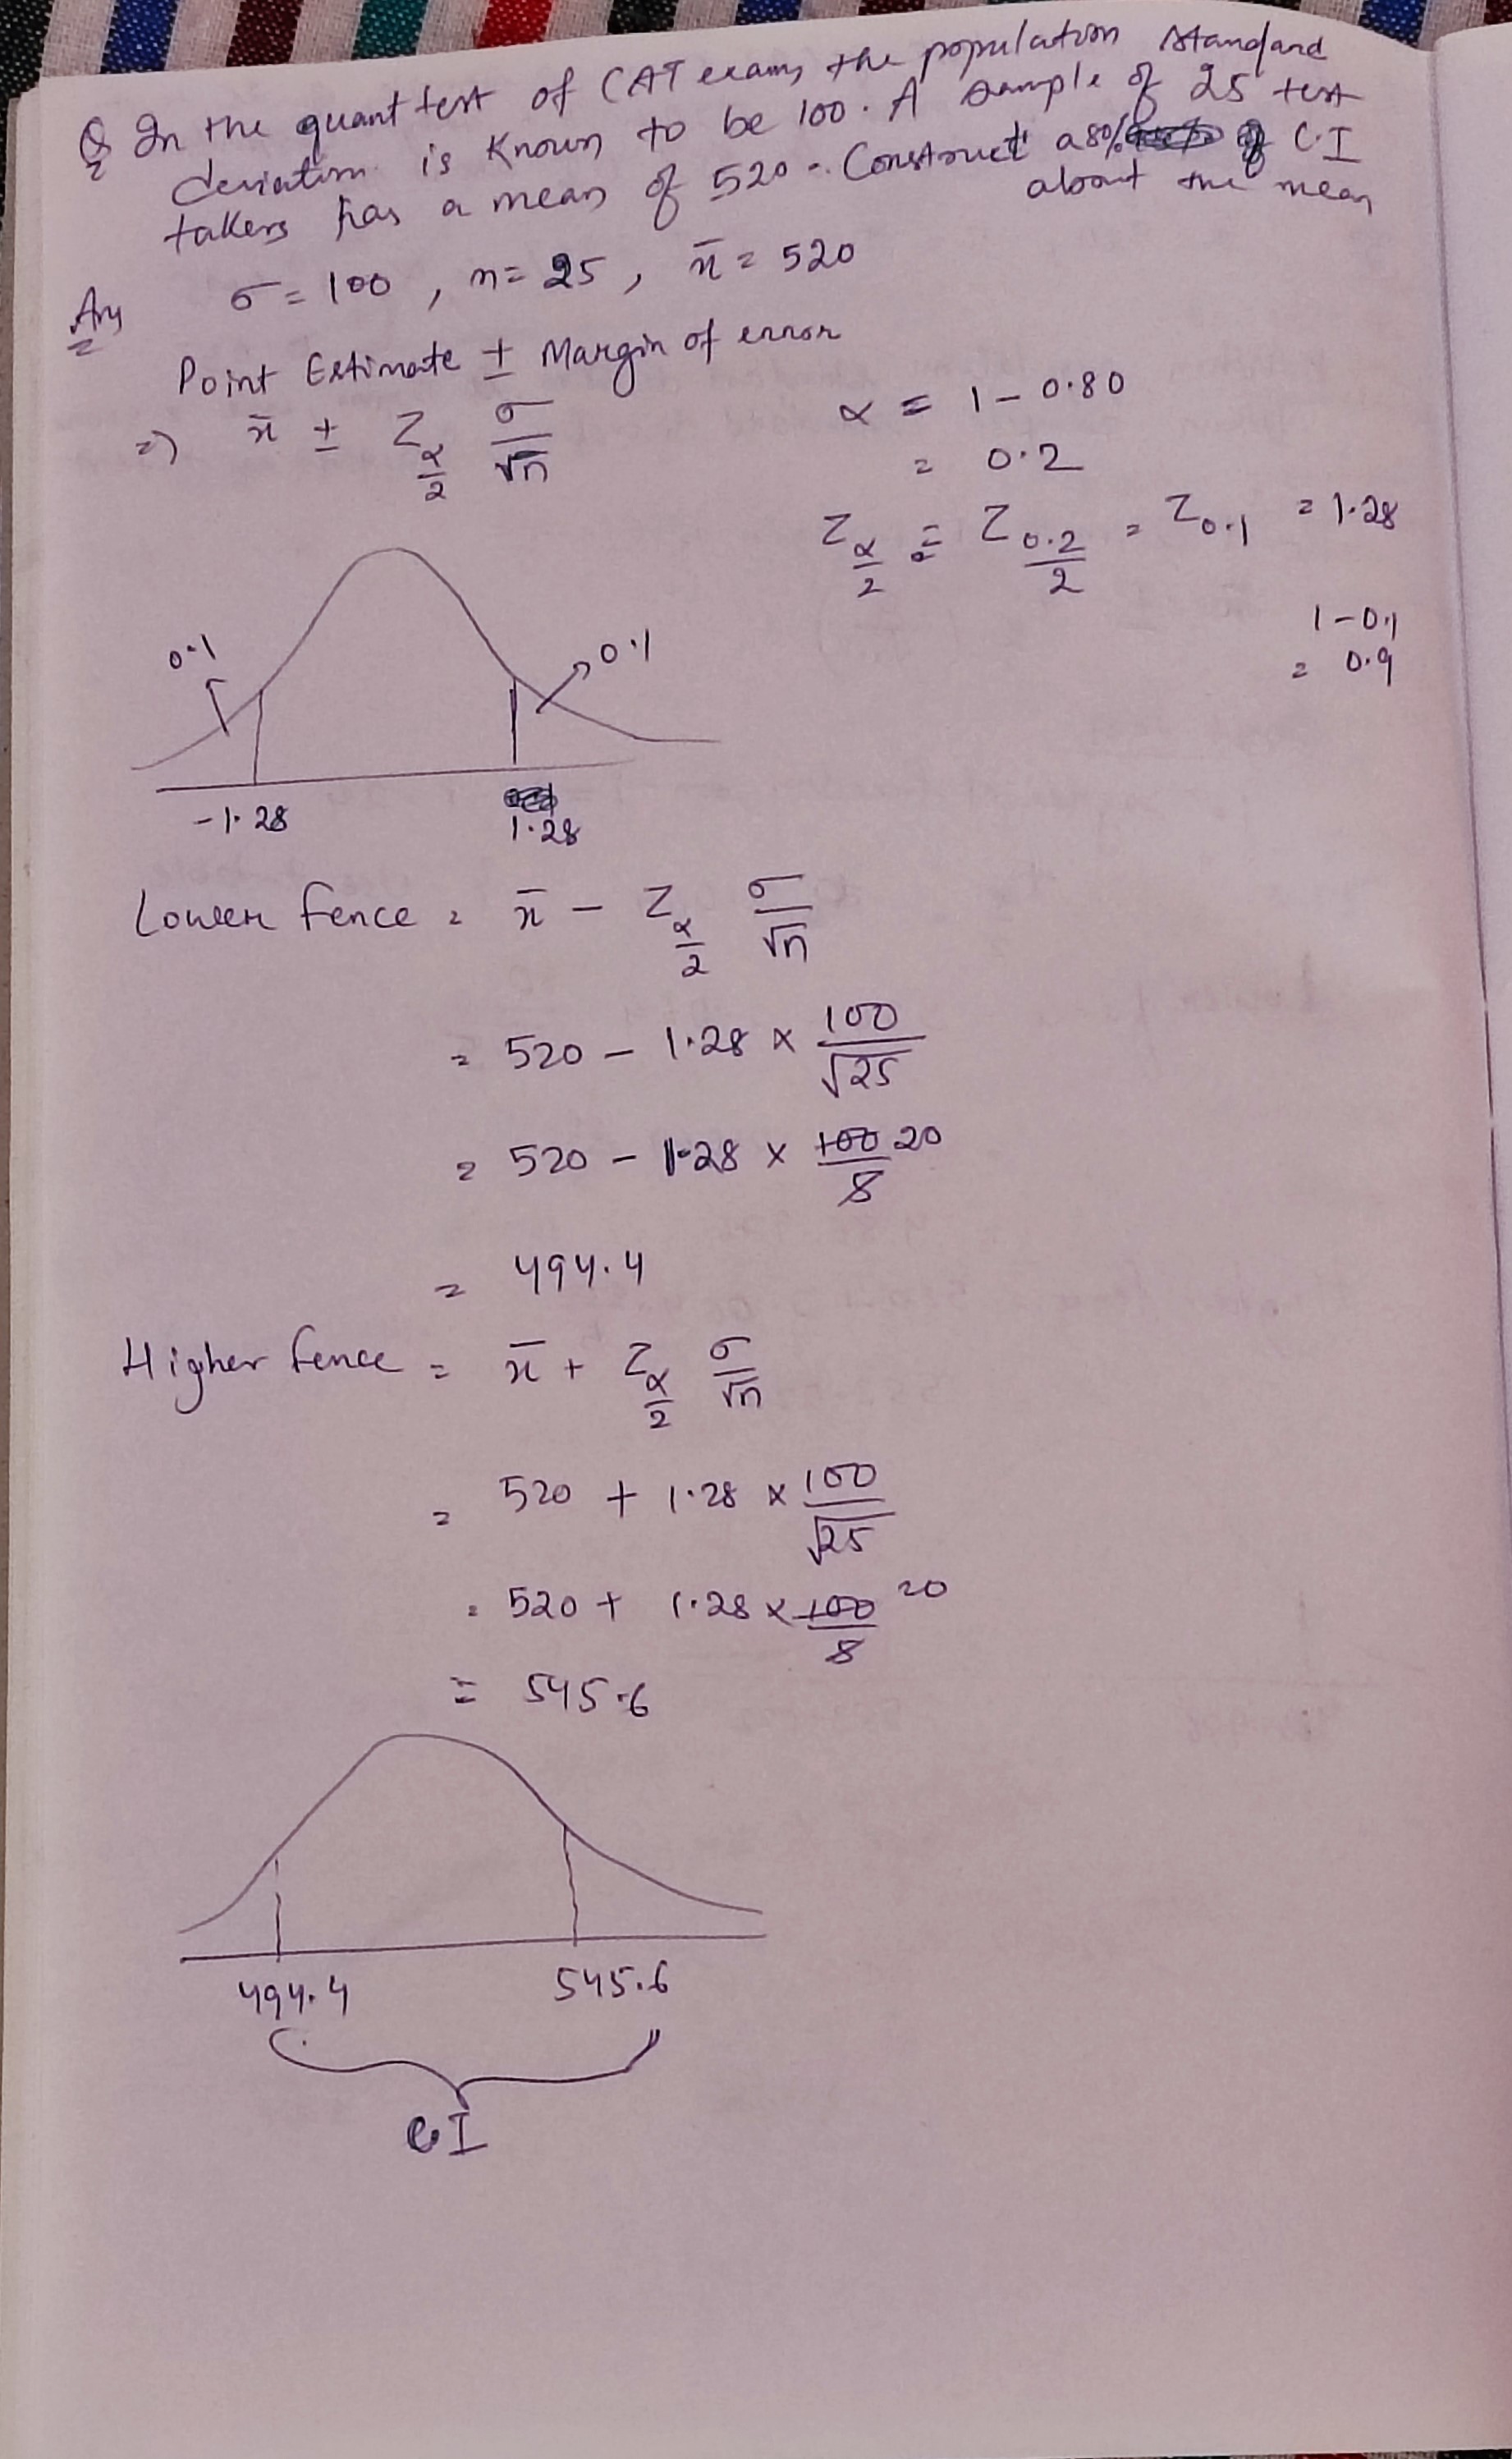 Q In the quant test of CAT exam, the population standard
deviation is known to be 100. A sample of 25 test
takers has a mean of 520. Construct a 80% C.I
about the mean
Ans σ = 100, n = 25, x̄ = 520
Point Estimate ± Margin of error
=> x̄ ± Z_{α/2} σ/√n
α = 1 - 0.80
= 0.2
Z_{α/2} = Z_{0.2/2} = Z_{0.1} = 1.28
1 - 0.1
= 0.9
0.1 0.1
-1.28 1.28
Lower fence = x̄ - Z_{α/2} σ/√n
= 520 - 1.28 × 100/√25
= 520 - 1.28 × 100/5 20
= 494.4
Higher fence = x̄ + Z_{α/2} σ/√n
= 520 + 1.28 × 100/√25
= 520 + 1.28 × 100/5 20
= 545.6
494.4 545.6
CI